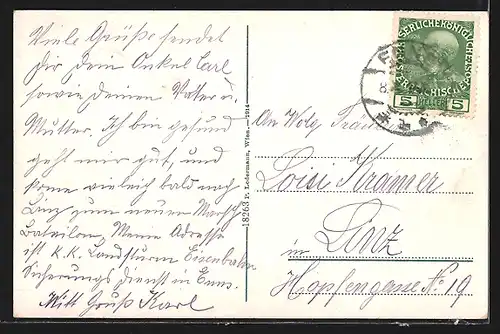 Viele Grüße sendet
dir dein Onkel Carl
sowie deinen Vater u.
Mutter. Ich bin gesund
geht mir gut, und
kome vieleich bald nach
Linz zum neuen Marsch
Batailon. Meine Adresse
ist K.K. Landsturm Eisenbahn
Sicherungs Dienst in Enns.
Mitt Gruß Karl
18263 P. Ledermann, Wien. — 1914
SERLICHEKÖNIGLICHE
5 HELLER 5
An
Loisi Kramer
in Linz
Hopfengasse No 19